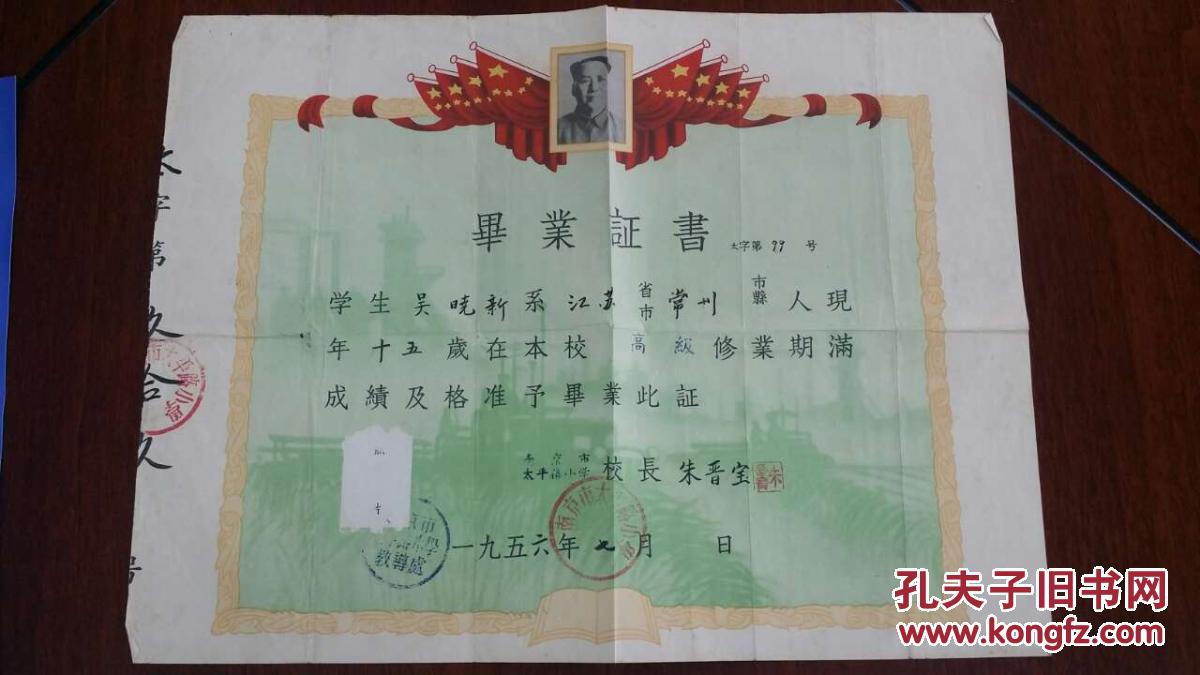 畢業証書
太字第99号
学生吴晓新系江苏省市常州市縣人現
年十五歲在本校高級修業期滿
成績及格准予畢業此証
南京市
太平路小学校長朱晋宝
一九五六年七月 日
太字第玖拾玖号
南京市太平路小學
教導處
孔夫子旧书网
www.kongfz.com